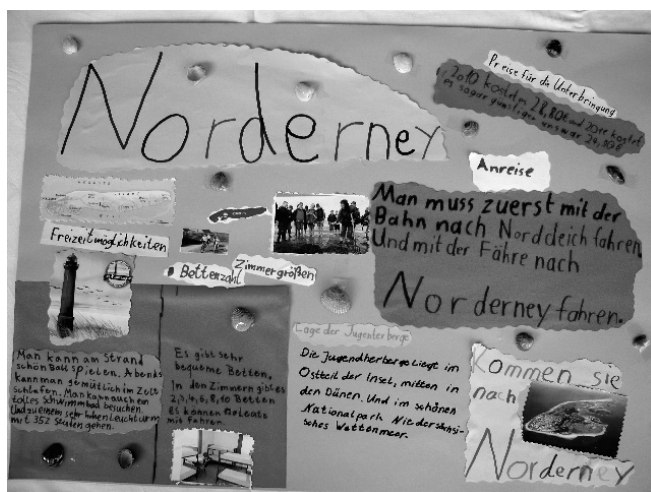 Norderney
Preise für die Unterbringung
2010 kostet
Anreise
Man muss zuerst mit der
Bahn nach Norddeich fahren
Und mit der Fähre nach
Norderney fahren.
Freizeitmöglichkeiten
Bettenzahl
Zimmergrößen
Man kann am Strand
schön Ball spielen. Abends
kann man gemütlich im Zelt
schlafen. Man kann auch ein
tolles Schwimmbad besuchen
Und zu einem sehr hohen Leuchtturm
mit 352 Stufen gehen.
Es gibt sehr
bequeme Betten.
In den Zimmern gibt es
2,3,4,6,8,10 Betten
es können
mit fahren.
Lage der Jugenterberge
Die Jugendherberge liegt im
Ostteil der Insel, mitten in
den Dünen. Und im schönen
Nationalpark Niedersächsi-
sches Wattenmeer.
Kommen sie
nach
Norderney